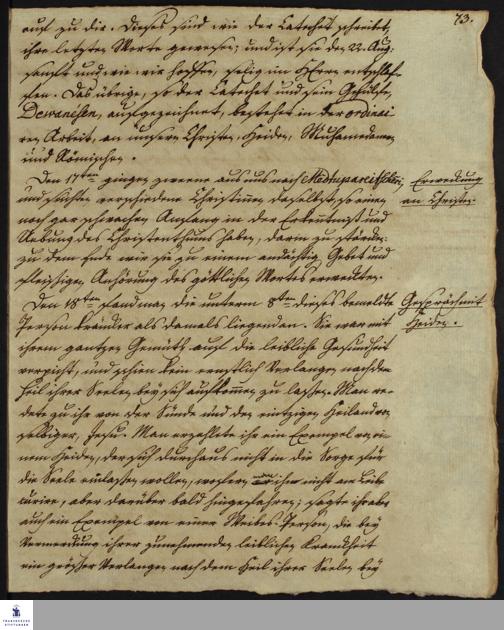 73.
auch zu dir. Dieses sind wie der Catechet schreibet,
ihre letzten Worte gewesen; und ist sie den 22. Aug:
sanfft und wie wir hoffen, selig im HErrn entschlaf-
fen. Das übrige, so der Catechet und sein Gehülfe,
Dewanesen, aufgezeichnet, bestehet in der ordinai
ren Arbeit, an unsern Christen, Heiden, Muhamedanern
und Römischen.
Den 17ten giengen zweene aus uns nach
und suchten verschiedene Christinnen daselbst, so einen
noch gar schwachen Anfang in der Erkentniß und
Uebung des Christenthums haben, darin zu stärcken:
zu dem Ende wir sie zu einem andächtig Gebet und
fleissigen Anhörung des göttlichen Wortes erweckten.
Erweckung
an Christen.
Den 18ten fand man die unterm 8ten dieses bemeldte
Person kräncker als damals liegenden. Sie war mit
ihrem gantzen Gemüth auf die leibliche Gesundheit
erpicht, und schien kein ernstlich Verlangen nach dem
Heil ihrer Seelen bey sich aufkommen zu lassen. Man re-
dete zu ihr von der Sünde und dem eintzigen Heilande von
selbiger, Jesu. Man erzehlete ihr ein Exempel von ei-
nem Heiden, der sich durchaus nicht in die Sorge für
die Seele einlassen wollen, wofern man ihn nicht am Leibe
curire, aber darüber bald hingefahren; sagte ihr aber
auch ein Exempel von einer Weibes-Person, die bey
Vermerckung ihrer zunehmenden leiblichen Kranckheit
ein grösser Verlangen nach dem Heil ihrer Seelen bey
Gespräch mit
Heiden.
FRANCKESCHE
STIFTUNGEN